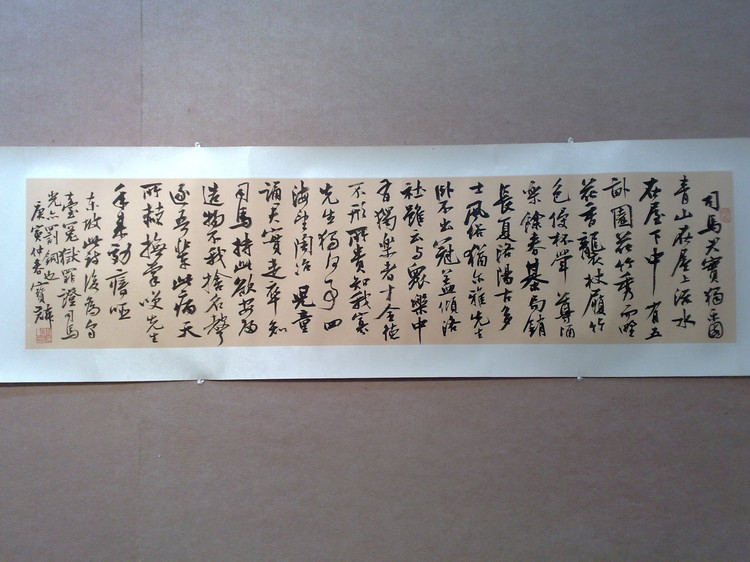 司馬君實獨樂園
青山在屋上流水
在屋下中有五
畝園花竹秀而野
花香襲杖屨竹
色侵杯斝尊酒
樂餘春基局銷
長夏洛陽古多
士風俗猶尔雅先生
卧不出冠蓋傾洛
社雖云与眾樂中
有獨樂者才全德
不形所貴知我寡
先生獨何事四
海望陶冶兒童
誦君實走卒知
司馬持此欲安歸
造物不我捨名聲
逐吾輩此病天
所赭撫掌笑先生
年来効瘖啞
东坡此詩後為烏
臺冤獄罪證司馬
光亦罰銅也
庚寅仲春寶麟